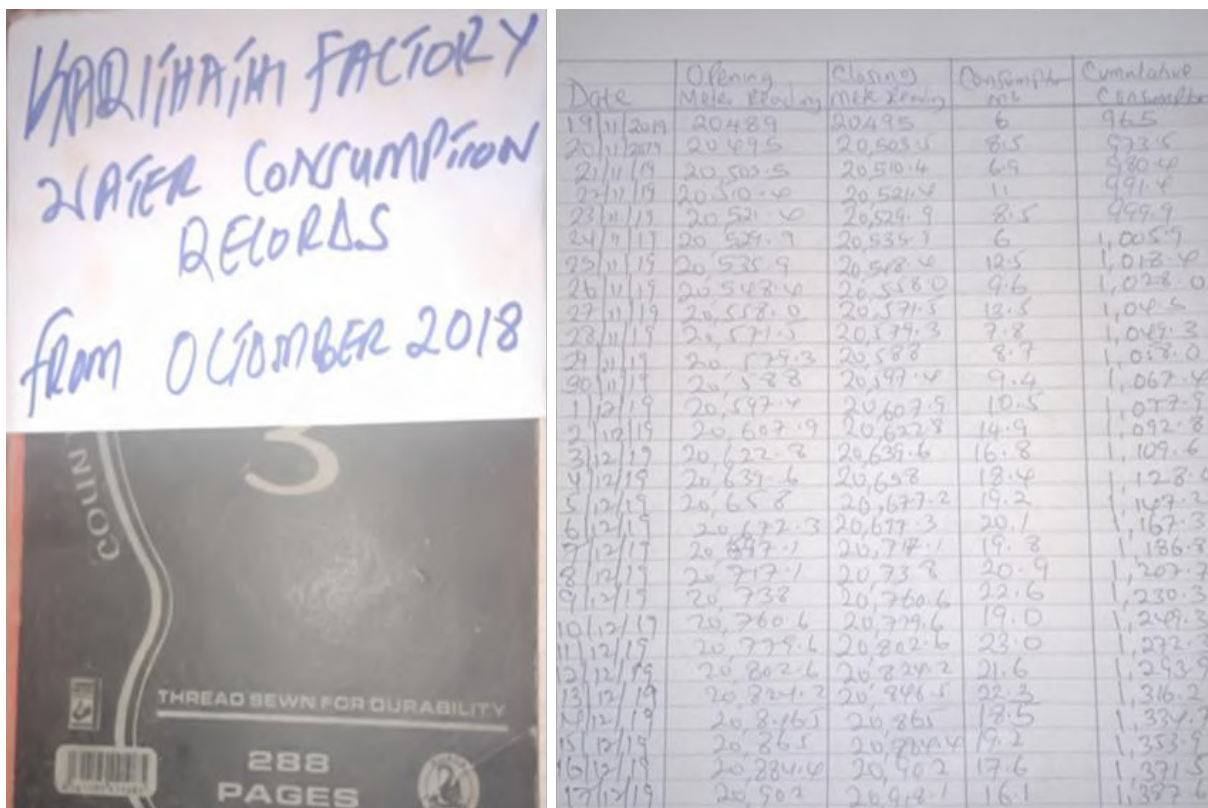 FACTORY
WATER CONSUMPTION
RECORDS
from OCTOMBER 2018
COUN
3
THREAD SEWN FOR DURABILITY
288
PAGES
Date Opening Meter Reading Closing Meter Reading Consumption m3 Cumulative
19/11/2019 20489 20495 6 965
20/11/2019 20495 20,503.5 8.5 973.5
21/11/19 20,503.5 20,510.4 6.9 980.4
22/11/19 20,510.4 20,521.4 11 991.4
23/11/19 20,521.4 20,529.9 8.5 999.9
24/11/19 20,529.9 20,535.9 6 1,005.9
25/11/19 20,535.9 20,548.4 12.5 1,018.4
26/11/19 20,548.4 20,558.0 9.6 1,028.0
27/11/19 20,558.0 20,571.5 1,041.5
28/11/19 20,571.5 20,579.3 7.8 1,049.3
29/11/19 20,579.3 20,588 8.7 1,058.0
30/11/19 20,588 20,597.4 9.4 1,067.4
1/12/19 20,597.4 20,607.9 10.5 1,077.9
2/12/19 20,607.9 20,622.8 14.9 1,092.8
3/12/19 20,622.8 20,639.6 16.8 1,109.6
4/12/19 20,639.6 20,658 18.4 1,128.0
5/12/19 20,658 20,677.2 19.2 1,147.2
6/12/19 20,697.3 20.1 1,167.3
7/12/19 20,717.1 19.8 1,186.8
8/12/19 20,717.1 20,738 20.9 1,207.7
9/12/19 20,738 20,760.6 22.6 1,230.3
10/12/19 20,760.6 20,779.6 19.0 1,249.3
11/12/19 20,779.6 20,802.6 23.0 1,272.3
12/12/19 20,802.6 20,824.2 21.6 1,293.9
13/12/19 20,824.2 20,846.5 22.3 1,316.2
14/12/19 20,846.5 20,865 18.5 1,334.7
15/12/19 20,865 19.2 1,353.9
16/12/19 20,884.4 20,902 17.6 1,371.5
17/12/19 20,902 20,918.1 16.1 1,387.6